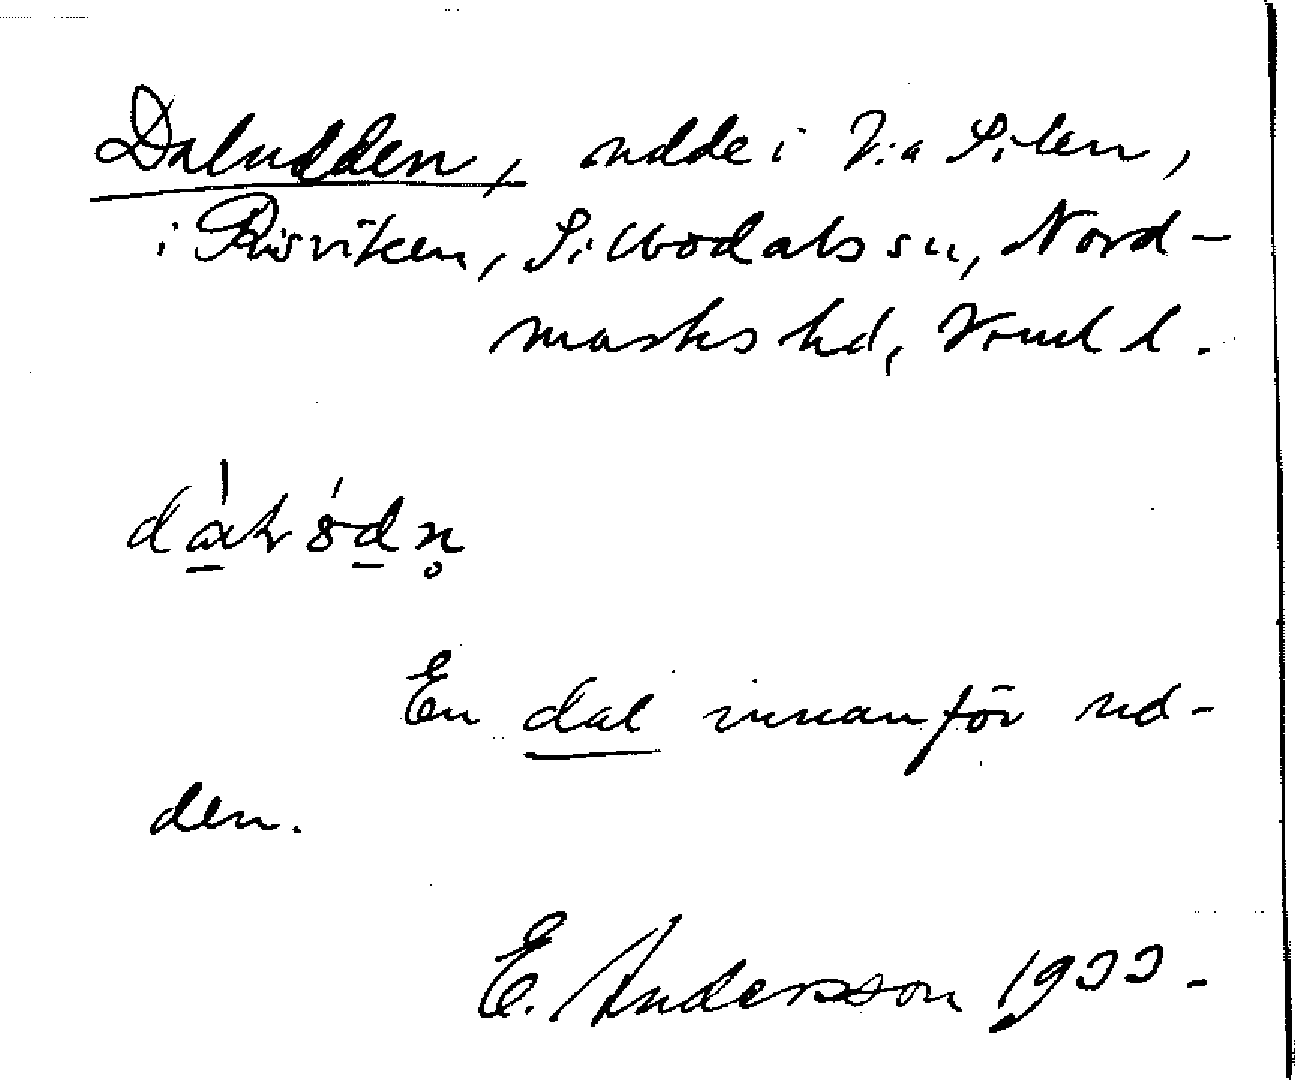 Daludden, udde i V:a Silen,
i Risviken, Sillbodals sn, Nord-
marks hd, Vrml l.
En dal innanför ud-
den.
E. Andersson 1933.